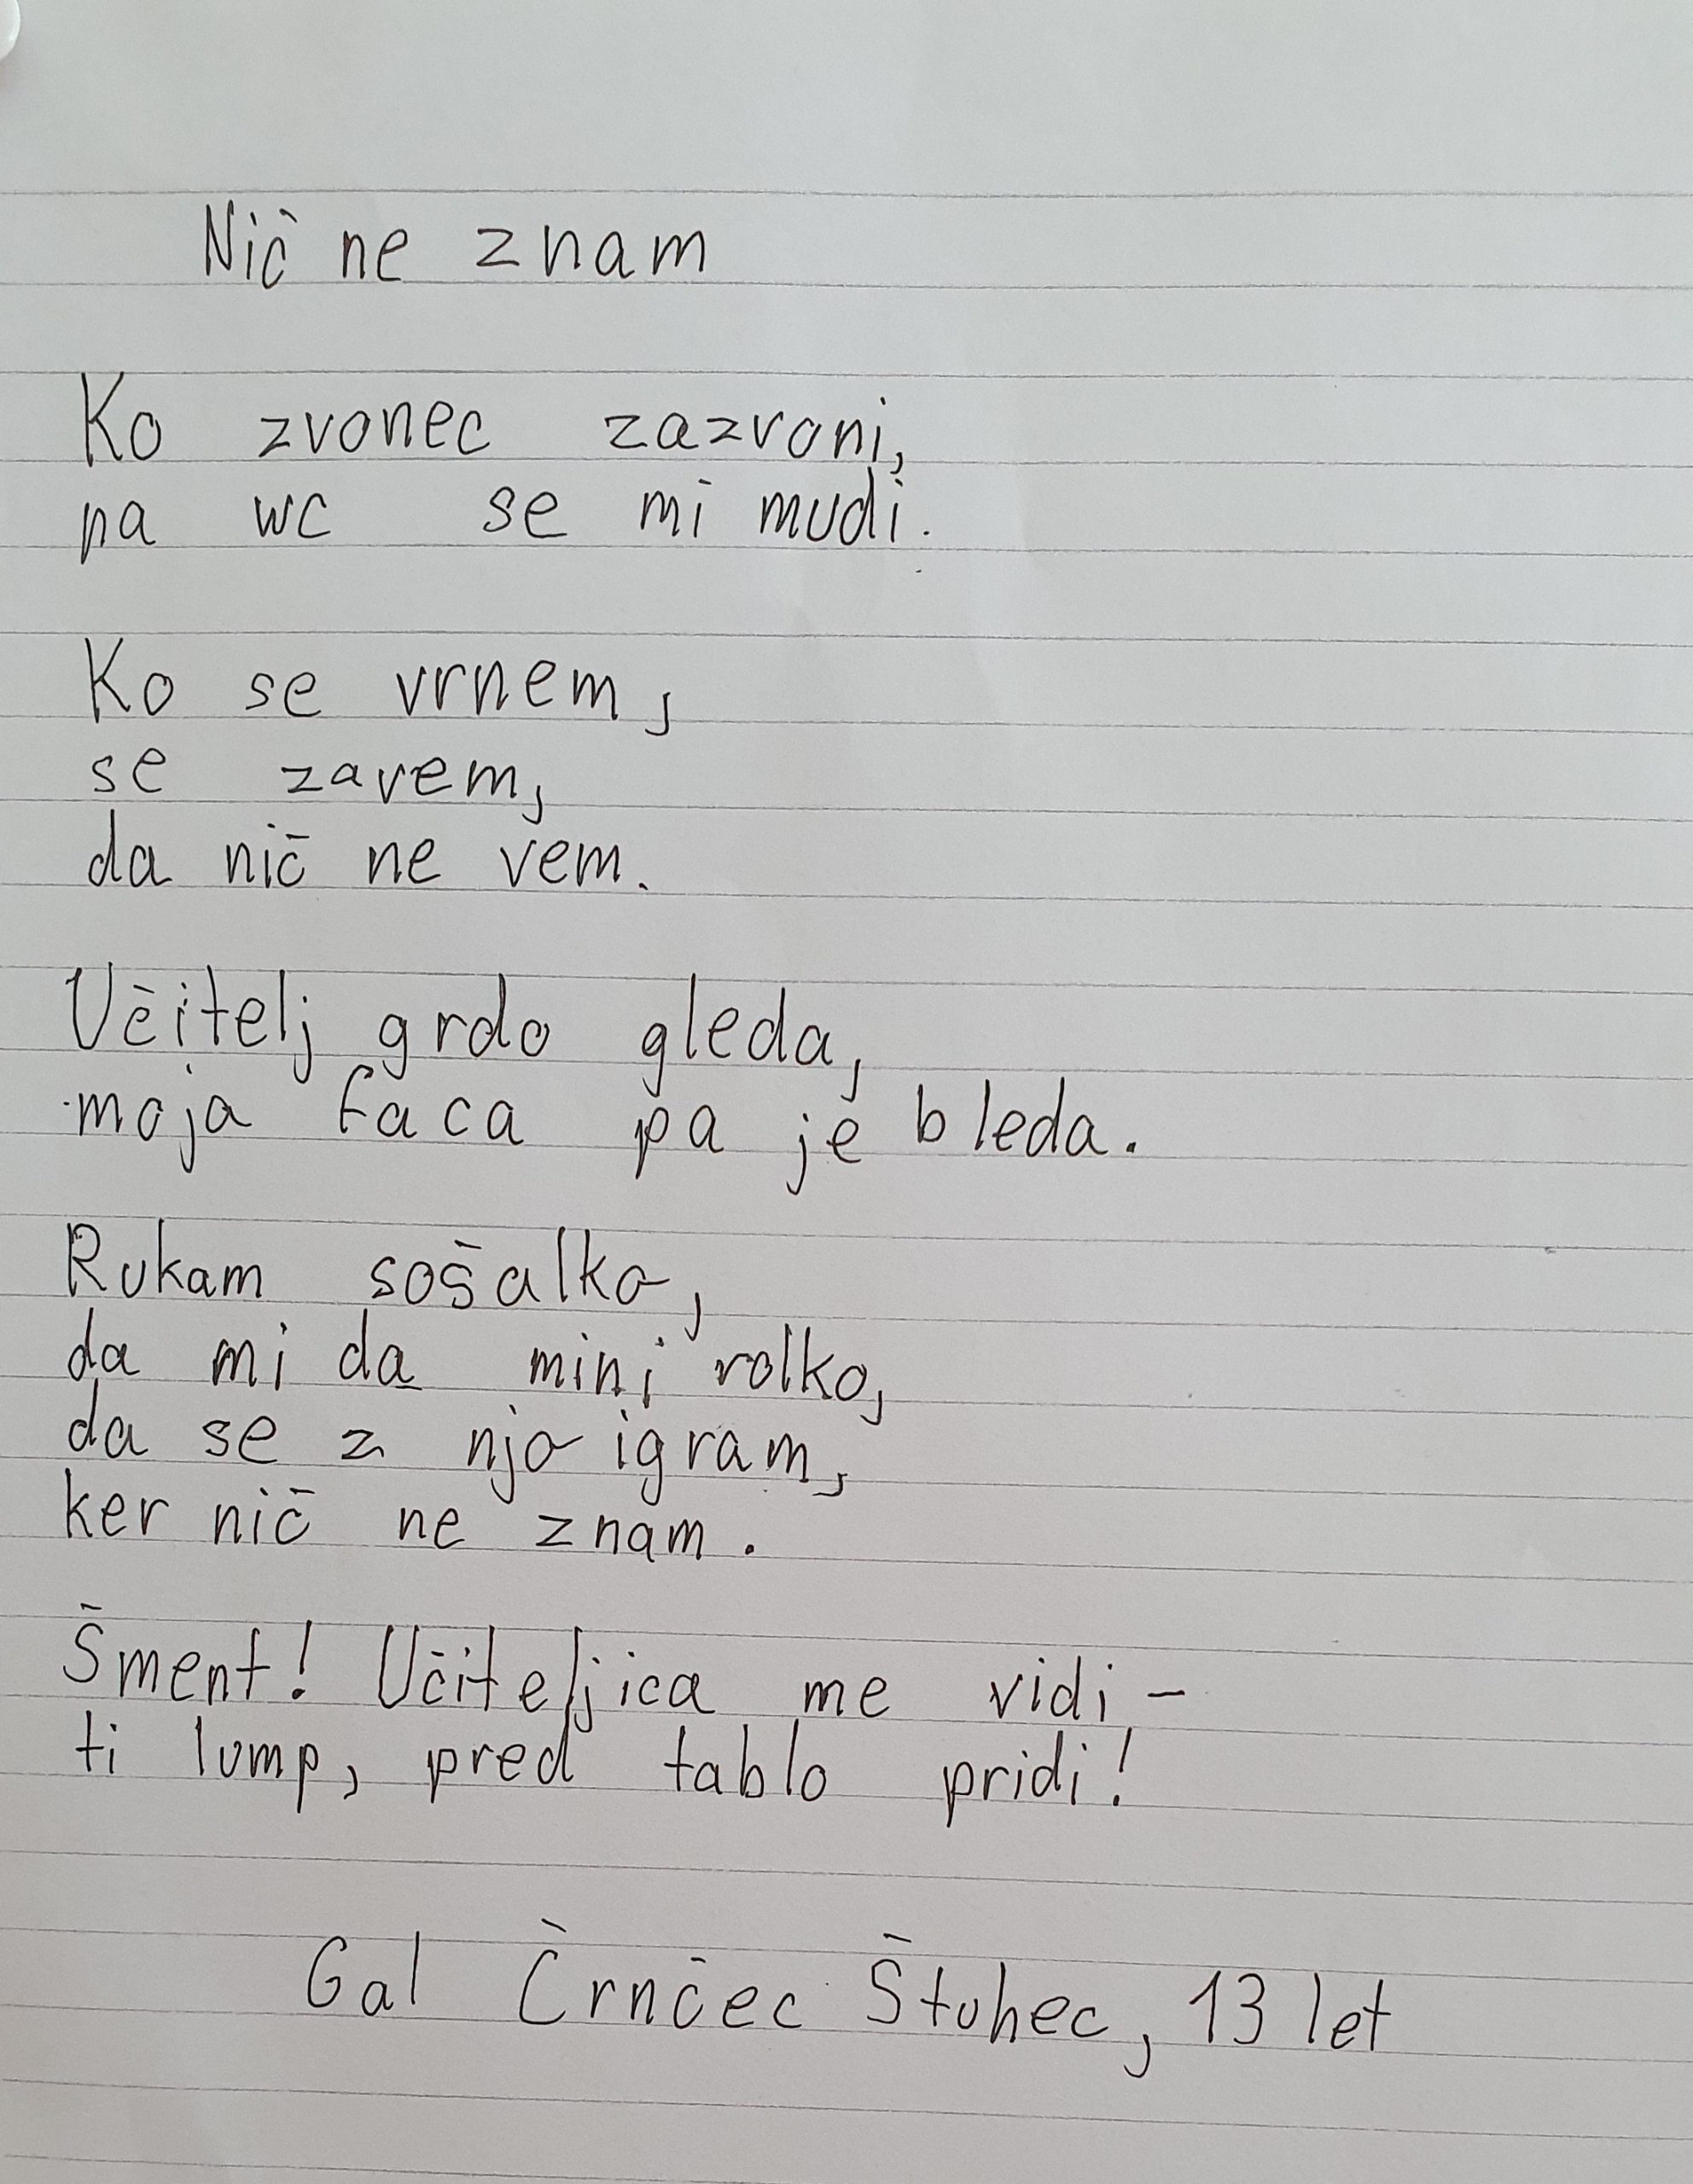 Nič ne znam
Ko zvonec zazvoni,
na wc se mi mudi.
Ko se vrnem,
se zavem,
da nič ne vem.
Učitelj grdo gleda,
moja faca pa je bleda.
Rukam sošolko,
da mi da mini rolko,
da se z njo igram,
ker nič ne znam.
Šment! Učiteljica me vidi -
ti lump, pred tablo pridi!
Gal Črnčec Štuhec, 13 let